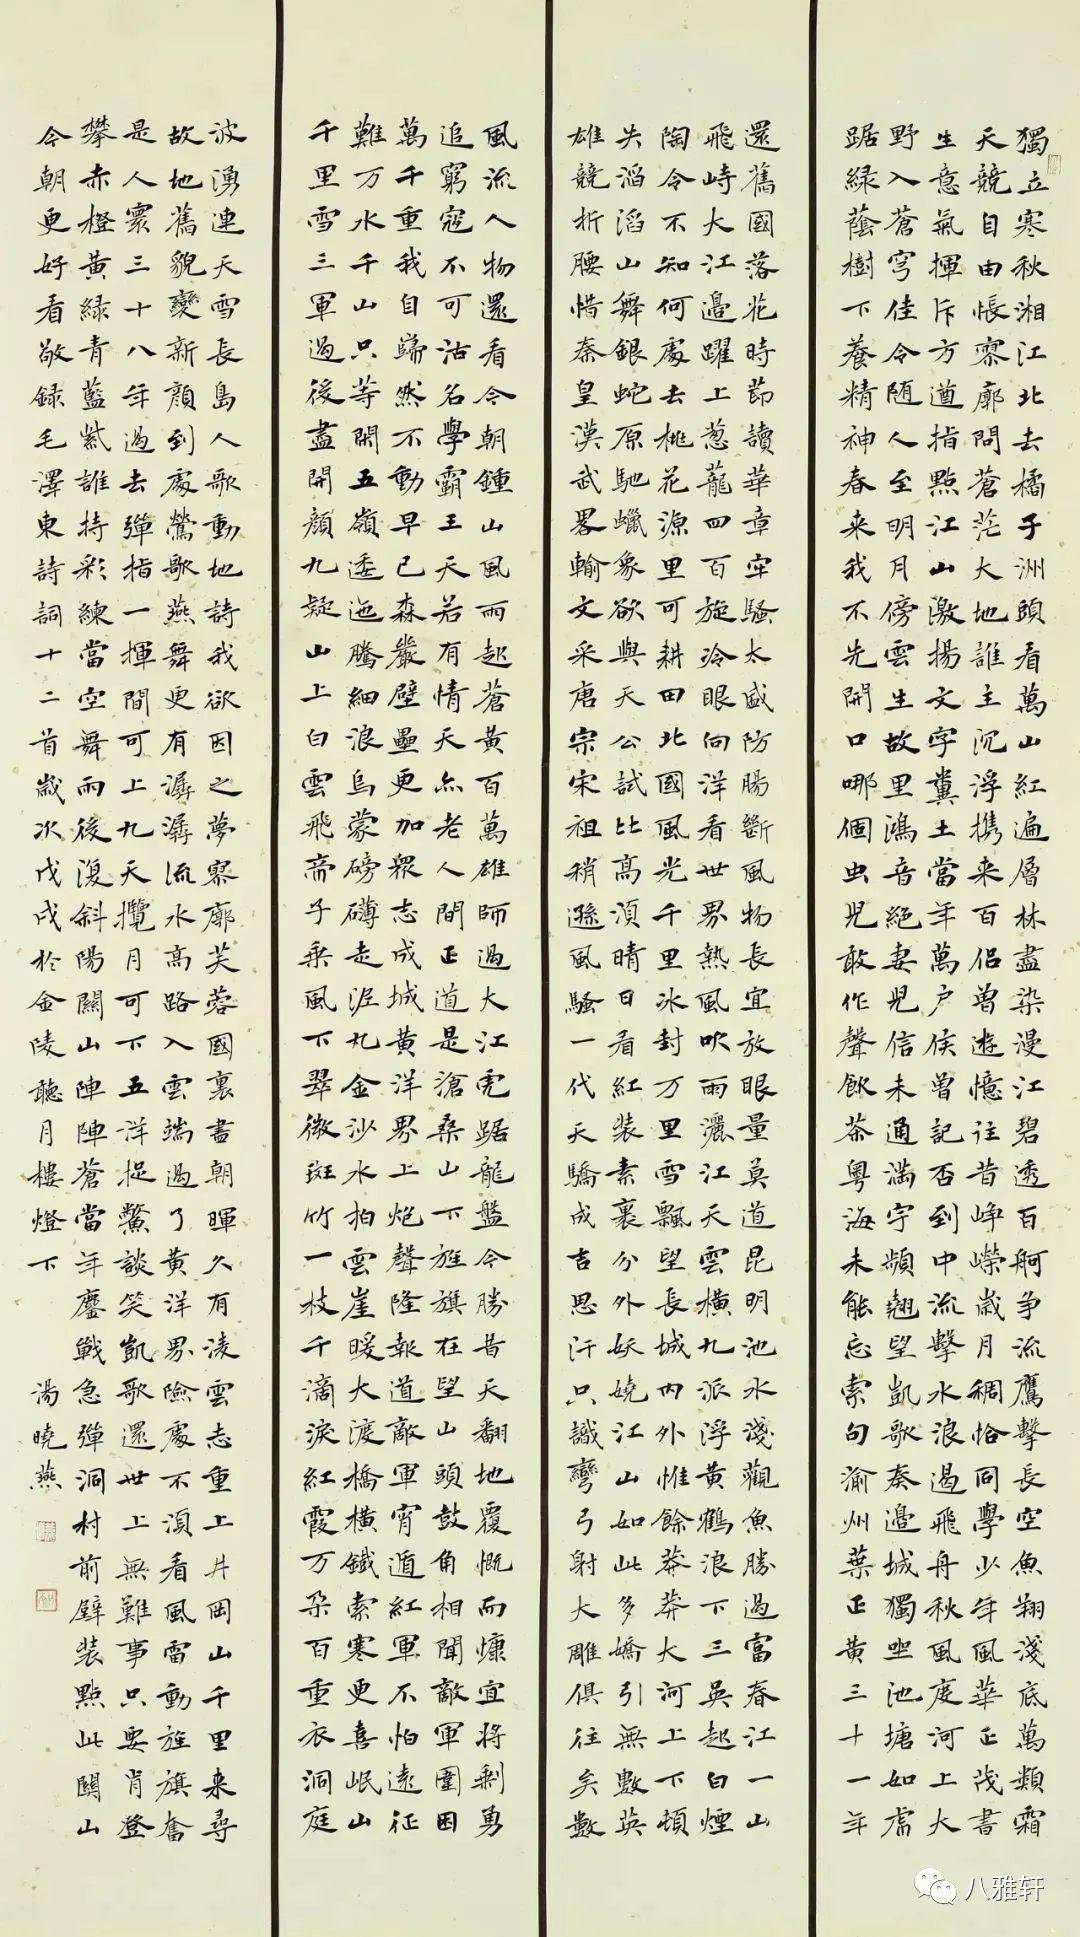 獨立寒秋湘江北去橘子洲頭看萬山紅遍層林盡染漫江碧透百舸争流鷹擊長空魚翔淺底萬類霜
天競自由悵寥廓問蒼茫大地誰主沉浮携来百侣曾遊憶往昔崢嶸歲月稠恰同學少年風華正茂書
生意氣揮斥方遒指點江山激揚文字糞土當年萬户侯曾記否到中流擊水浪遏飛舟秋風度河上大
野入蒼穹佳令随人至明月傍雲生故里鴻音絕妻兒信未通满宇頻翹望凱歌奏邊城獨坐池塘如虎
踞緑蔭樹下養精神春来我不先開口哪個虫兒敢作聲飲茶粤海未能忘索句渝州葉正黄三十一年
還舊國落花時節讀華章牢騷太盛防腸斷風物長宜放眼量莫道昆明池水淺觀魚勝過富春江一山
飛峙大江邊躍上葱蘢四百旋冷眼向洋看世界熱風吹雨灑江天雲橫九派浮黄鶴浪下三吳起白煙
陶令不知何處去桃花源里可耕田北國風光千里冰封万里雪飄望長城内外惟餘莽莽大河上下頓
失滔滔山舞銀蛇原馳蠟象欲與天公試比高須晴日看紅装素裹分外妖嬈江山如此多嬌引無數英
雄競折腰惜秦皇漢武畧輸文采唐宗宋祖稍遜風騷一代天驕成吉思汗只識彎弓射大雕俱往矣數
風流人物還看今朝鍾山風雨起蒼黄百萬雄師過大江虎踞龍盤今勝昔天翻地覆慨而慷宜將剩勇
追窮寇不可沽名學霸王天若有情天亦老人間正道是滄桑山下旌旗在望山頭鼓角相聞敵軍圍困
萬千重我自巋然不動早已森嚴壁壘更加衆志成城黄洋界上炮聲隆報道敵軍宵遁紅軍不怕遠征
難万水千山只等閒五嶺逶迤騰細浪烏蒙磅礴走泥丸金沙水拍雲崖暖大渡橋橫鐵索寒更喜岷山
千里雪三軍過後盡開顔九嶷山上白雲飛帝子乘風下翠微斑竹一枝千滴淚紅霞万朵百重衣洞庭
波湧連天雪長島人歌動地詩我欲因之夢寥廓芙蓉國裏盡朝暉久有凌雲志重上井岡山千里来尋
故地舊貌變新顔到處鶯歌燕舞更有潺潺流水高路入雲端過了黄洋界險處不須看風雷動旌旗奮
是人寰三十八年過去彈指一揮間可上九天攬月可下五洋捉鱉談笑凱歌還世上無難事只要肯登
攀赤橙黄緑青藍紫誰持彩練當空舞雨後復斜陽關山陣陣蒼當年鏖戰急彈洞村前壁装點此關山
今朝更好看敬録毛澤東詩詞十二首歲次戊戌於金陵聽月樓燈下 湯曉燕
八雅轩